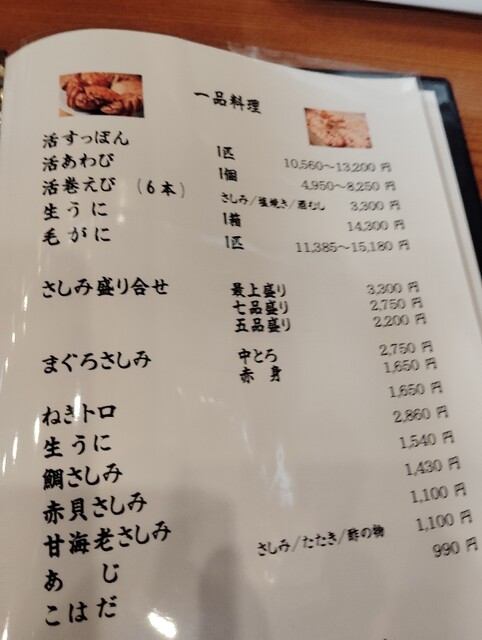 一品料理
活すっぽん 1匹 10,560～13,200 円
活あわび 1個 4,950～8,250 円
活巻えび (6本) さしみ/塩焼き/酒むし 3,300 円
生うに 1箱 14,300 円
毛がに 1匹 11,385～15,180 円
さしみ盛り合せ 最上盛り 3,300 円
七品盛り 2,750 円
五品盛り 2,200 円
まぐろさしみ 中とろ 2,750 円
赤身 1,650 円
ねぎトロ 1,650 円
生うに 2,860 円
鯛さしみ 1,540 円
赤貝さしみ 1,430 円
甘海老さしみ 1,100 円
あじ さしみ/たたき/酢の物 1,100 円
こはだ 990 円